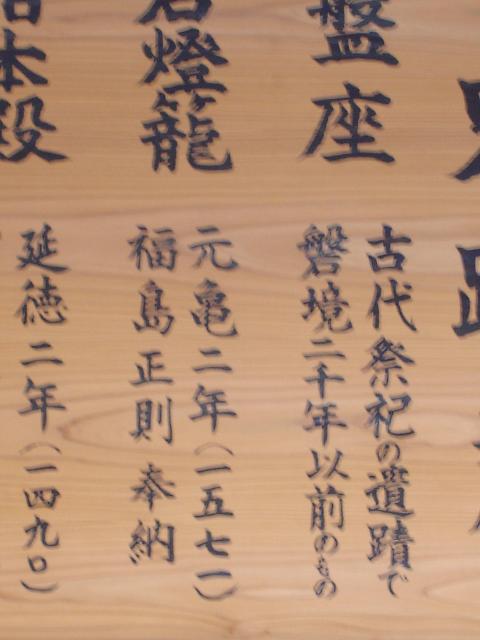 盤座
古代祭祀の遺蹟で
磐境二千年以前のもの
石燈籠
元亀二年（一五七一）
福島正則奉納
本殿
延徳二年（一四九〇）